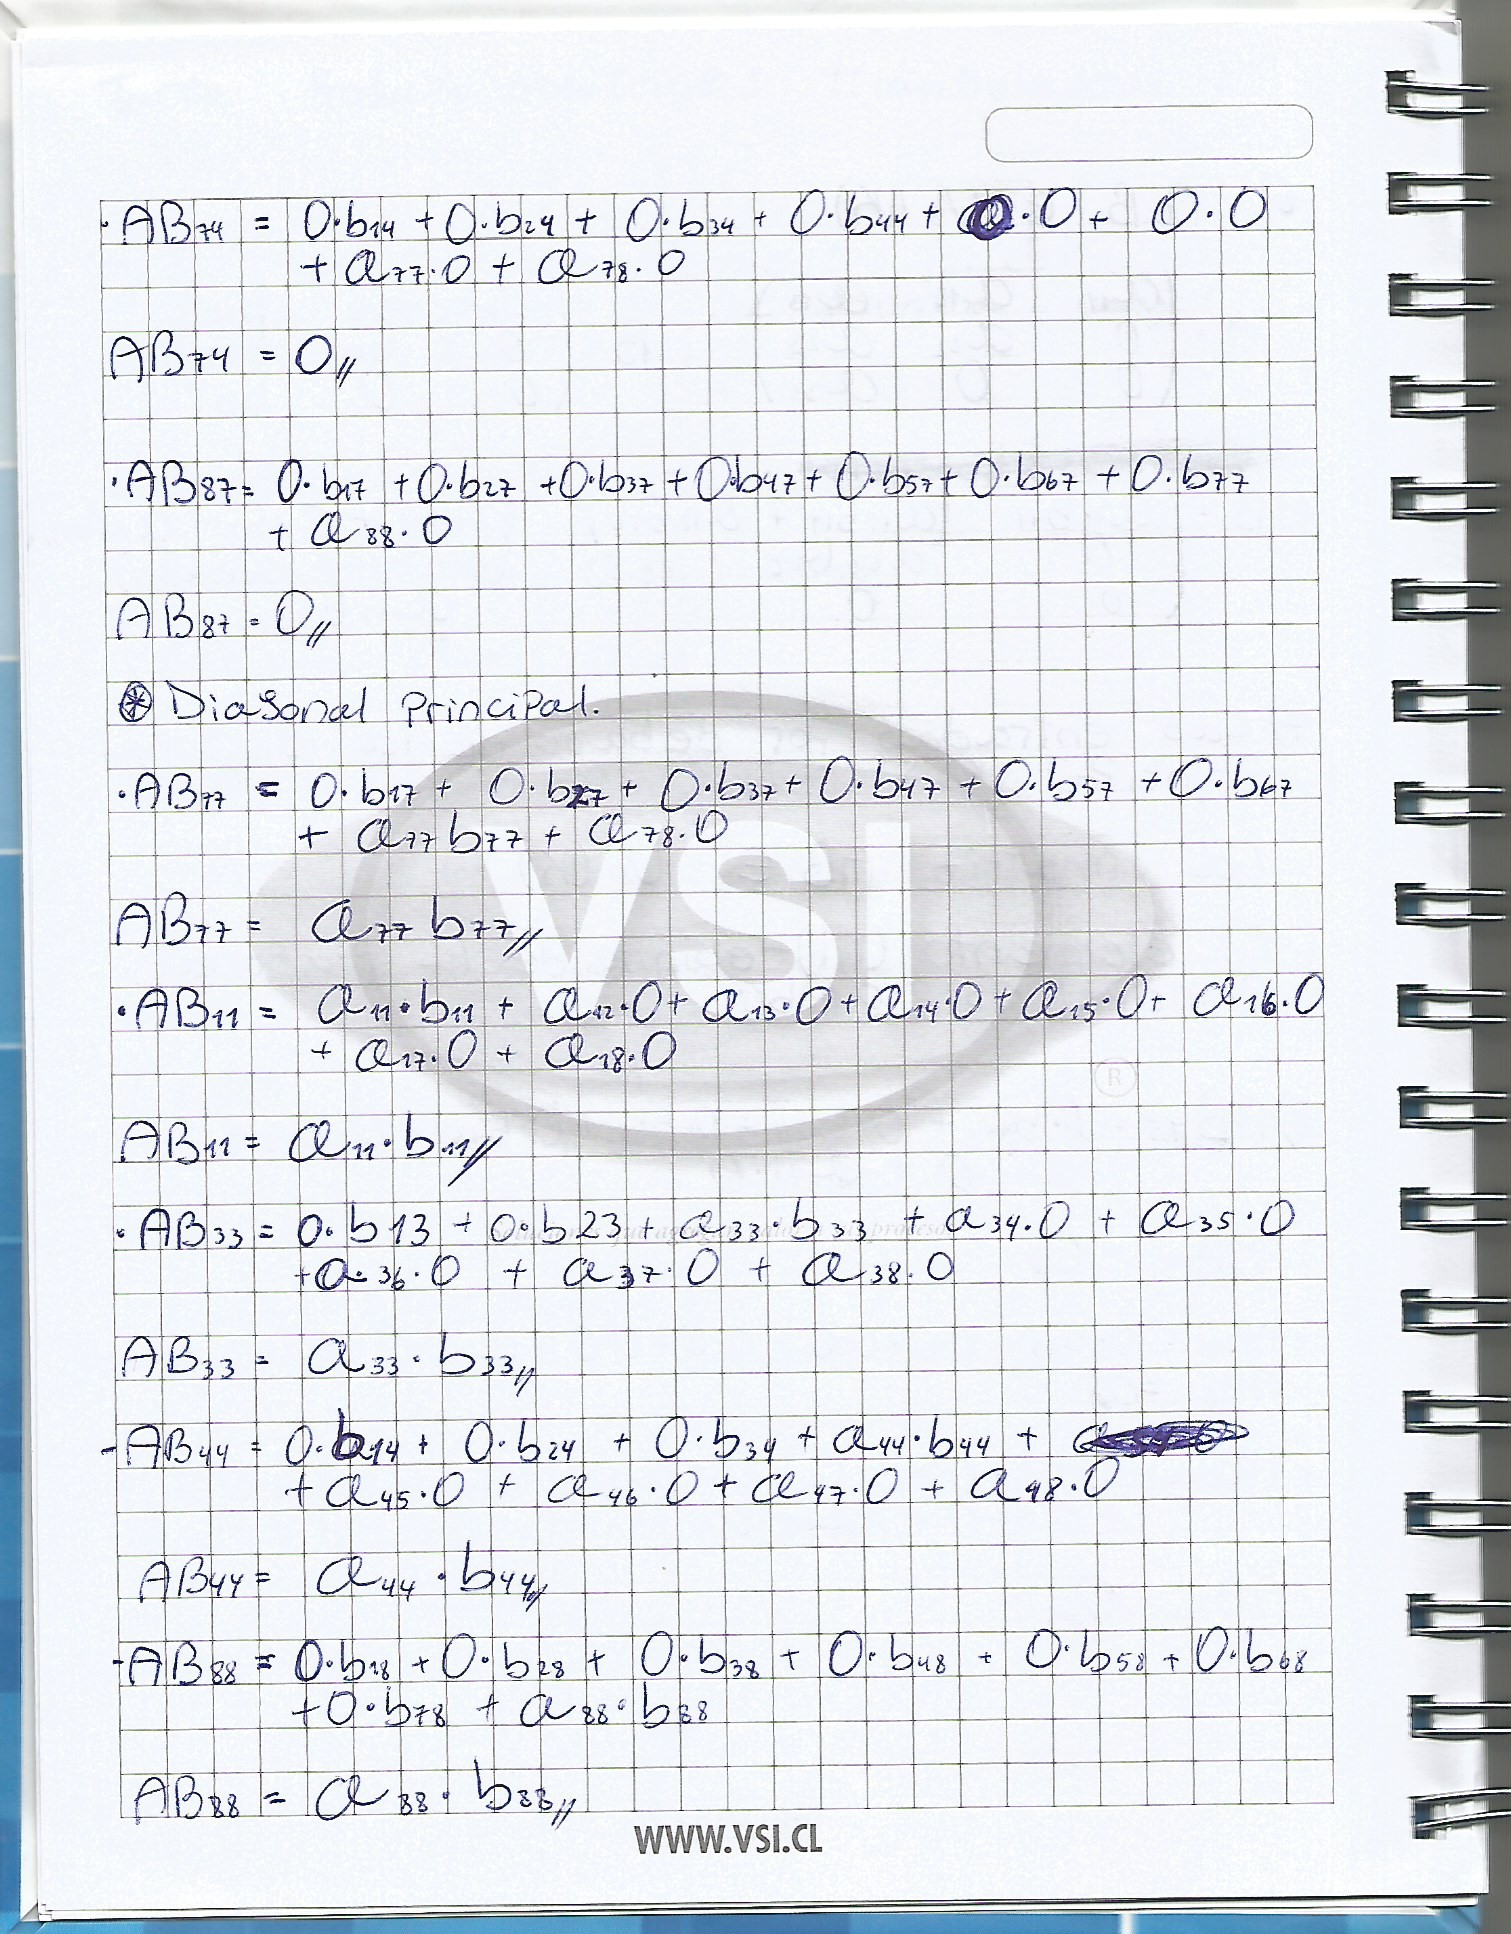 ·AB74 = 0·b14 + 0·b24 + 0·b34 + 0·b44 + 0·0 + 0·0
+ a77·0 + a78·0
AB74 = 0//
·AB87 = 0·b17 + 0·b27 + 0·b37 + 0·b47 + 0·b57 + 0·b67 + 0·b77
+ a88·0
AB87 = 0//
⊛ Diagonal principal.
·AB77 = 0·b17 + 0·b27 + 0·b37 + 0·b47 + 0·b57 + 0·b67
+ a77 b77 + a78·0
VSI
AB77 = a77 b77//
·AB11 = a11·b11 + a12·0 + a13·0 + a14·0 + a15·0 + a16·0
+ a17·0 + a18·0
®
AB11 = a11·b11//
·AB33 = 0·b13 + 0·b23 + a33·b33 + a34·0 + a35·0
+a·36·0 + a37·0 + a38·0
AB33 = a33·b33//
-AB44 = 0·b14 + 0·b24 + 0·b34 + a44·b44 +
+ a45·0 + a46·0 + a47·0 + a48·0
AB44 = a44·b44//
-AB88 = 0·b18 + 0·b28 + 0·b38 + 0·b48 + 0·b58 + 0·b68
+0·b78 + a88·b88
AB88 = a88·b88//
WWW.VSI.CL